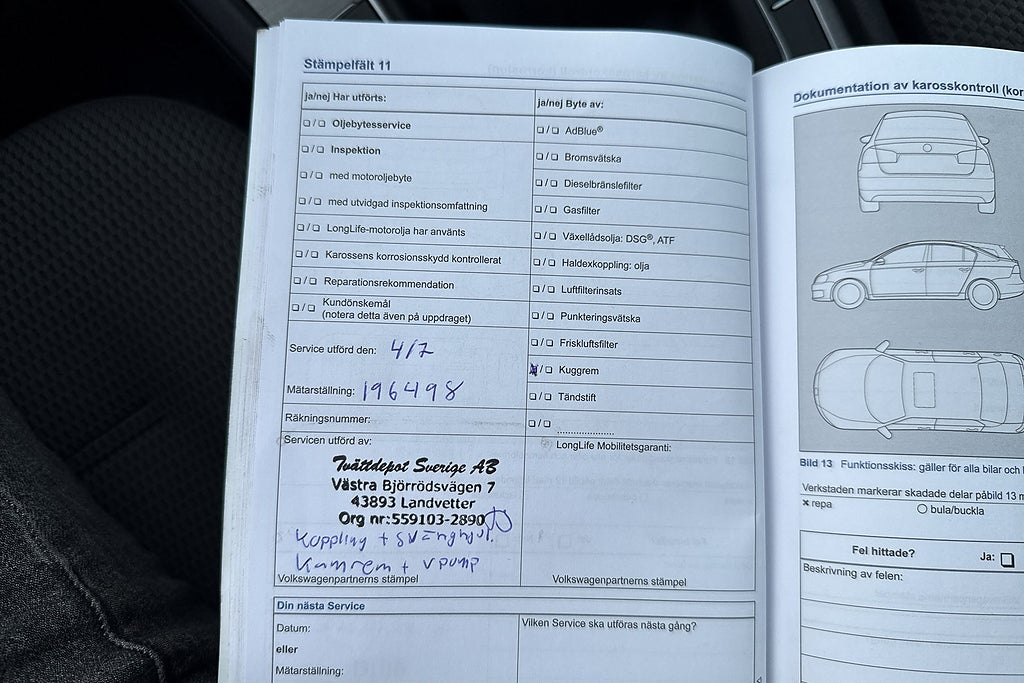 Stämpelfält 11
ja/nej Har utförts:
❏ / ❏ Oljebytesservice
❏ / ❏ Inspektion
❏ / ❏ med motoroljebyte
❏ / ❏ med utvidgad inspektionsomfattning
❏ / ❏ LongLife-motorolja har använts
❏ / ❏ Karossens korrosionsskydd kontrollerat
❏ / ❏ Reparationsrekommendation
❏ / ❏ Kundönskemål
(notera detta även på uppdraget)
Service utförd den: 4/7
Mätarställning: 196498
Räkningsnummer:
Servicen utförd av:
Tvättdepot Sverige AB
Västra Björrödsvägen 7
43893 Landvetter
Org nr:559103-2890
Koppling + svänghjul.
Kamrem + vpump
Volkswagenpartnerns stämpel
ja/nej Byte av:
❏ / ❏ AdBlue®
❏ / ❏ Bromsvätska
❏ / ❏ Dieselbränslefilter
❏ / ❏ Gasfilter
❏ / ❏ Växellådsolja: DSG®, ATF
❏ / ❏ Haldexkoppling: olja
❏ / ❏ Luftfilterinsats
❏ / ❏ Punkteringsvätska
❏ / ❏ Friskluftsfilter
❏ / ❏ Kuggrem
❏ / ❏ Tändstift
❏ / ❏ ....................
LongLife Mobilitetsgaranti:
Volkswagenpartnerns stämpel
Din nästa Service
Datum:
eller
Mätarställning:
Vilken Service ska utföras nästa gång?
Dokumentation av karosskontroll (kor
Bild 13 Funktionsskiss: gäller för alla bilar och
Verkstaden markerar skadade delar påbild 13 m
× repa
○ bula/buckla
Fel hittade?
Ja: ❏
Beskrivning av felen: